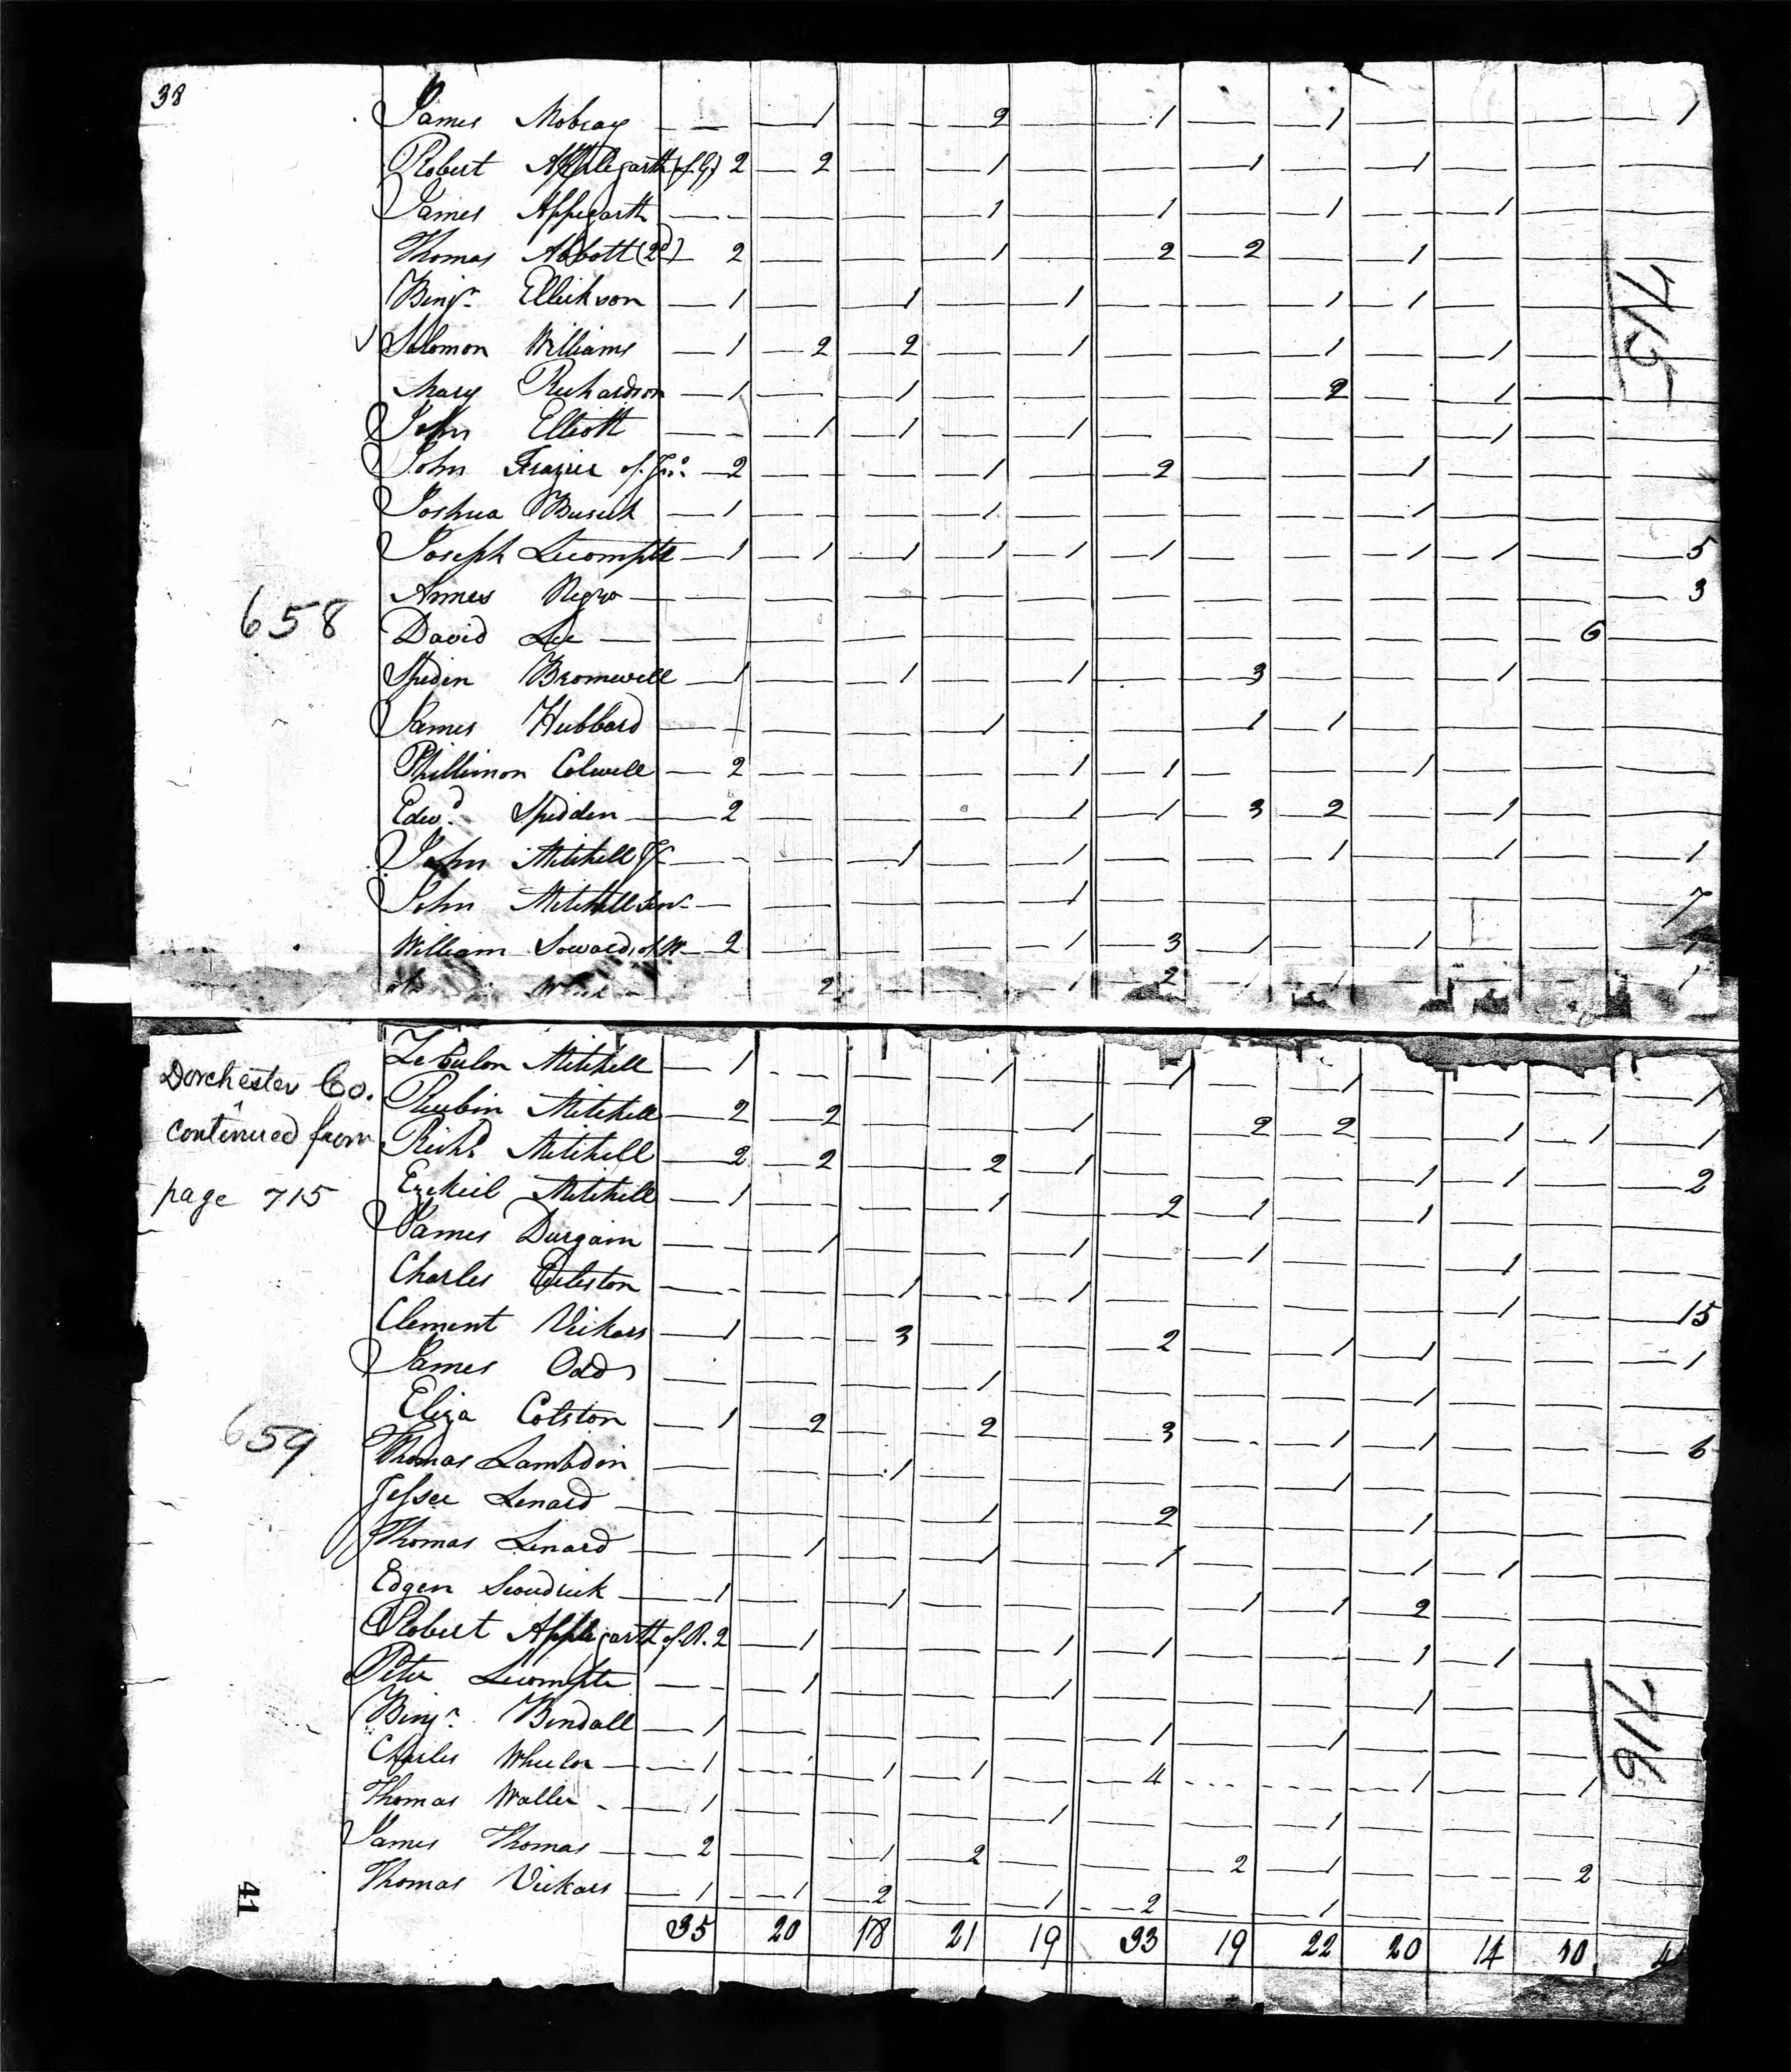 38
James Mobray — — 1 — — 2 — 1 — 1 — — — 1
Robert Applegarth (of G) 2 — 2 — — 1 — — 1 — 1 — — —
James Appegarth — — — — 1 — 1 — 1 — — 1 — —
Thomas Abbott (2d) — 2 — — — 1 — 2 — 2 — 1 — — —
Benjn. Ellickson — 1 — — 1 — 1 — — 1 — 1 — — —
Solomon Williams — 1 — 2 — 2 — 1 — — 1 — 1 — —
Mary Richardson — 1 — — 1 — — — — 2 — 1 — —
John Elliott — — 1 — 1 — — 1 — — — — 1 — —
John Frazier of Jno. — 2 — — — 1 — 2 — — 1 — — —
Joshua Busick — 1 — — — 1 — — — — 1 — — —
Joseph Lecompte — 1 — 1 — 1 — 1 — 1 — 1 — — 1 — 1 — 5
Negro — — — — — — — — — — — 3
David Lee — — — — — — — — — — — 6 —
Speden Bromwell — 1 — — 1 — 1 — — 3 — — 1 — —
James Hubbard — — — — 1 — — 1 — 1 — — — —
Phillimon Colwell — 2 — — — — 1 — 1 — — 1 — — —
Edwd. Spedden — 2 — — — 1 — 1 — 3 — 2 — 1 — —
John Mitchell Jr — — — 1 — 1 — — 1 — 1 — 1
John Mitchell Senr. — — — — — 1 — — — — — — 7
William Soward of Wm — 2 — — — — 1 — 3 — 1 — 1 — —
2 — — — 1 — 2 — 1 — 1 — — 1
658
715
Dorchester Co.
continued from
page 715
Zebulon Mitchell — 1 — — — 1 — 1 — — 1 — — — 1
Reubin Mitchell — 2 — 2 — — — 1 — — 2 — 2 — 1 — 1 — 1
Richd. Mitchell — 2 — 2 — — 2 — 1 — — — — 1 — 1 — 2
Ezekiel Mitchell — 1 — — — 1 — — 2 — 1 — — 1 — — —
James Durgain — — 1 — — — 1 — — 1 — — 1 — —
Charles Eccleston — — — 1 — — 1 — — — — — 1 — 15
Clement Vickars — 1 — — 3 — — — 2 — — 1 — 1 — — 1
James Odd — — — — 1 — — — — — 1 — — —
Eliza Colston — 1 — 2 — — 2 — — 3 — — 1 — 1 — — 6
Thomas Lambdin — — — 1 — — — — — 1 — — — —
Jessee Lenard — — — — 1 — — 2 — — 1 — — —
Thomas Lenard — — 1 — — 1 — — 1 — — 1 — 1 — —
Edgen — 1 — — 1 — — — 1 — 1 — 2 — — —
Robert Applegarth of R. 2 — 1 — — — 1 — 1 — — 1 — 1 — —
Peter Lecompte — — 1 — — — 1 — — — — 1 — — —
Benjn. Bendall — 1 — — — — — 1 — — 1 — — — —
Charles Wheelor — 1 — — 1 — 1 — — 4 — — — 1 — 1
Thomas Waller — 1 — — — — 1 — — — 1 — — — —
James Thomas — 2 — — 1 — 2 — — — 2 — 1 — — 2 —
Thomas Vickars — 1 — 1 — 2 — — 1 — 2 — — 1 — — — —
35 20 18 21 19 33 19 22 20 14 10
659
716
41